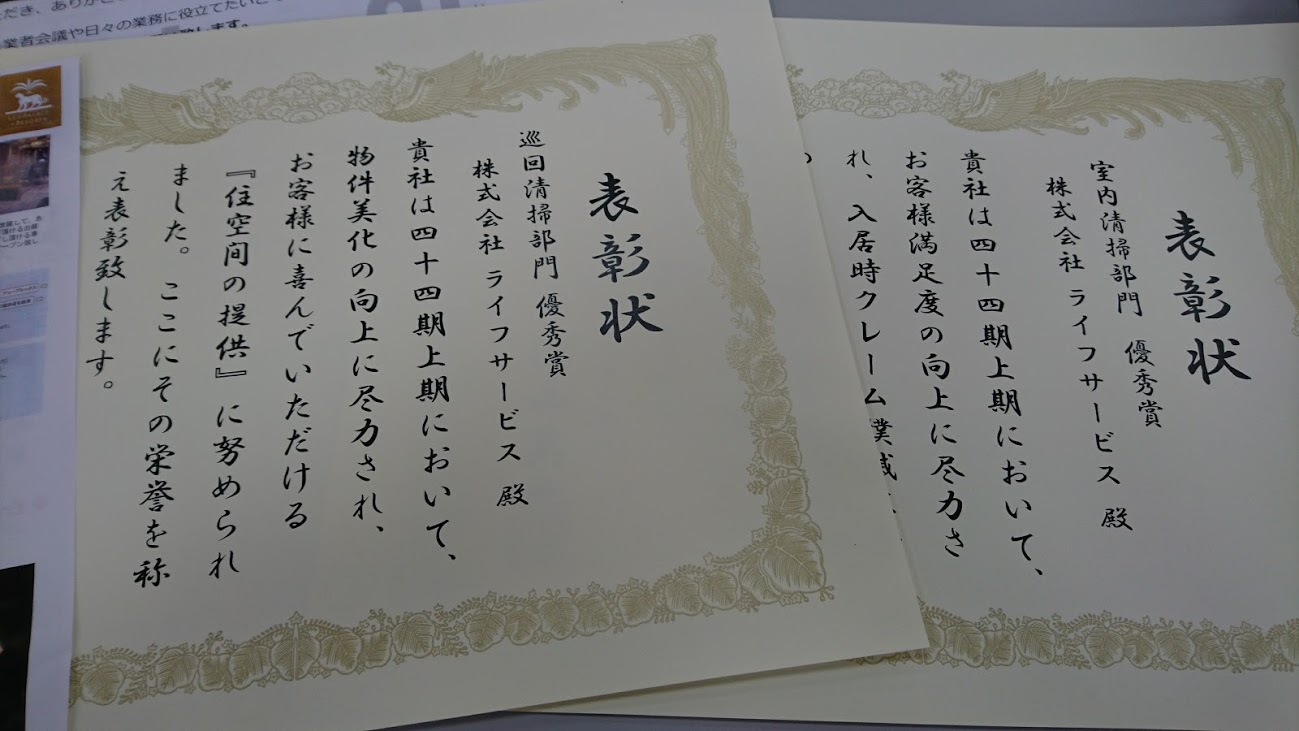 表彰状
巡回清掃部門 優秀賞
株式会社 ライフサービス 殿
貴社は四十四期上期において、
物件美化の向上に尽力され、
お客様に喜んでいただける
『住空間の提供』に努められ
ました。ここにその栄誉を称
え表彰致します。
表彰状
室内清掃部門 優秀賞
株式会社 ライフサービス 殿
貴社は四十四期上期において、
お客様満足度の向上に尽力さ
れ、入居時クレーム
だき、ありがとう
業者会議や日々の業務に役立てたいと
致します。